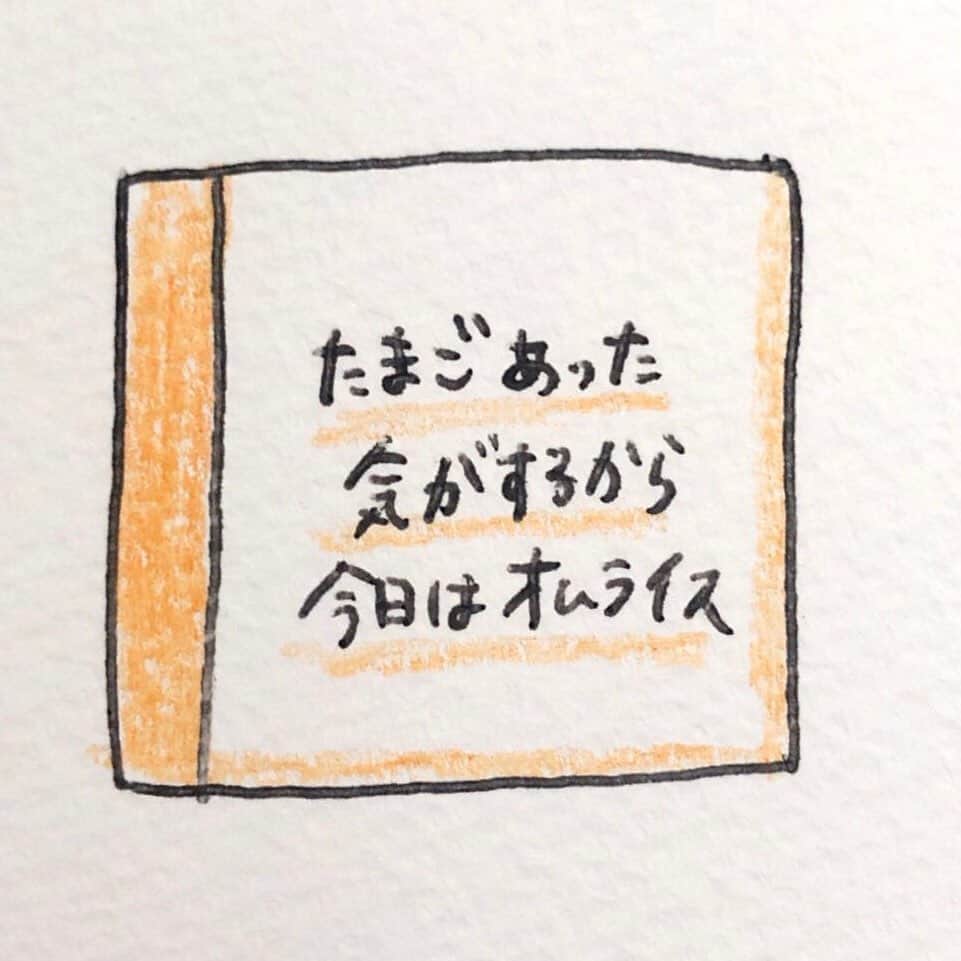 たまごあった
気がするから
今日はオムライス